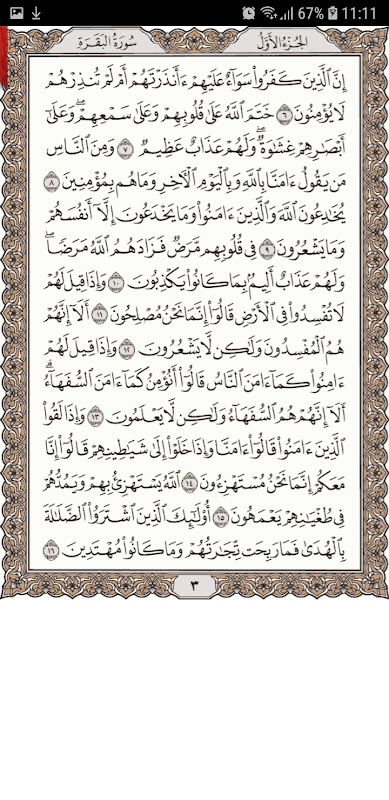 67% 11:11
الجزء الأول سورة البقرة
إِنَّ ٱلَّذِينَ كَفَرُوا۟ سَوَآءٌ عَلَيْهِمْ ءَأَنذَرْتَهُمْ أَمْ لَمْ تُنذِرْهُمْ
لَا يُؤْمِنُونَ ٦ خَتَمَ ٱللَّهُ عَلَىٰ قُلُوبِهِمْ وَعَلَىٰ سَمْعِهِمْ ۖ وَعَلَىٰٓ
أَبْصَٰرِهِمْ غِشَٰوَةٌ ۖ وَلَهُمْ عَذَابٌ عَظِيمٌ ٧ وَمِنَ ٱلنَّاسِ
مَن يَقُولُ ءَامَنَّا بِٱللَّهِ وَبِٱلْيَوْمِ ٱلْءَاخِرِ وَمَا هُم بِمُؤْمِنِينَ ٨
يُخَٰدِعُونَ ٱللَّهَ وَٱلَّذِينَ ءَامَنُوا۟ وَمَا يَخْدَعُونَ إِلَّآ أَنفُسَهُمْ
وَمَا يَشْعُرُونَ ٩ فِى قُلُوبِهِم مَّرَضٌ فَزَادَهُمُ ٱللَّهُ مَرَضًا ۖ
وَلَهُمْ عَذَابٌ أَلِيمٌۢ بِمَا كَانُوا۟ يَكْذِبُونَ ١٠ وَإِذَا قِيلَ لَهُمْ
لَا تُفْسِدُوا۟ فِى ٱلْأَرْضِ قَالُوٓا۟ إِنَّمَا نَحْنُ مُصْلِحُونَ ١١ أَلَآ إِنَّهُمْ
هُمُ ٱلْمُفْسِدُونَ وَلَٰكِن لَّا يَشْعُرُونَ ١٢ وَإِذَا قِيلَ لَهُمْ
ءَامِنُوا۟ كَمَآ ءَامَنَ ٱلنَّاسُ قَالُوٓا۟ أَنُؤْمِنُ كَمَآ ءَامَنَ ٱلسُّفَهَآءُ ۗ
أَلَآ إِنَّهُمْ هُمُ ٱلسُّفَهَآءُ وَلَٰكِن لَّا يَعْلَمُونَ ١٣ وَإِذَا لَقُوا۟
ٱلَّذِينَ ءَامَنُوا۟ قَالُوٓا۟ ءَامَنَّا وَإِذَا خَلَوْا۟ إِلَىٰ شَيَٰطِينِهِمْ قَالُوٓا۟ إِنَّا
مَعَكُمْ إِنَّمَا نَحْنُ مُسْتَهْزِءُونَ ١٤ ٱللَّهُ يَسْتَهْزِئُ بِهِمْ وَيَمُدُّهُمْ
فِى طُغْيَٰنِهِمْ يَعْمَهُونَ ١٥ أُو۟لَٰٓئِكَ ٱلَّذِينَ ٱشْتَرَوُا۟ ٱلضَّلَٰلَةَ
بِٱلْهُدَىٰ فَمَا رَبِحَت تِّجَٰرَتُهُمْ وَمَا كَانُوا۟ مُهْتَدِينَ ١٦
٣